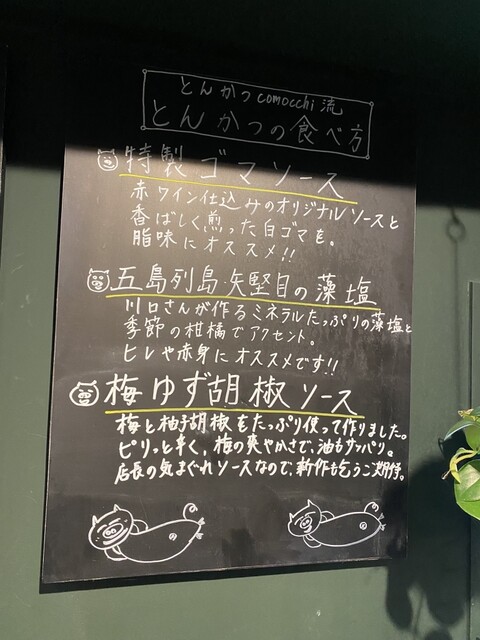 とんかつcomocchi流
とんかつの食べ方
特製ゴマソース
赤ワイン仕込みのオリジナルソースと
香ばしく煎った白ゴマを。
脂味にオススメ!!
五島列島・矢堅目の藻塩
川口さんが作るミネラルたっぷりの藻塩と
季節の柑橘でアクセント。
ヒレや赤身にオススメです!!
梅ゆず胡椒ソース
梅と柚子胡椒をたっぷり使って作りました。
ピリッと辛く、梅の爽やかさで、油もサッパリ。
店長の気まぐれソースなので、新作も乞うご期待。